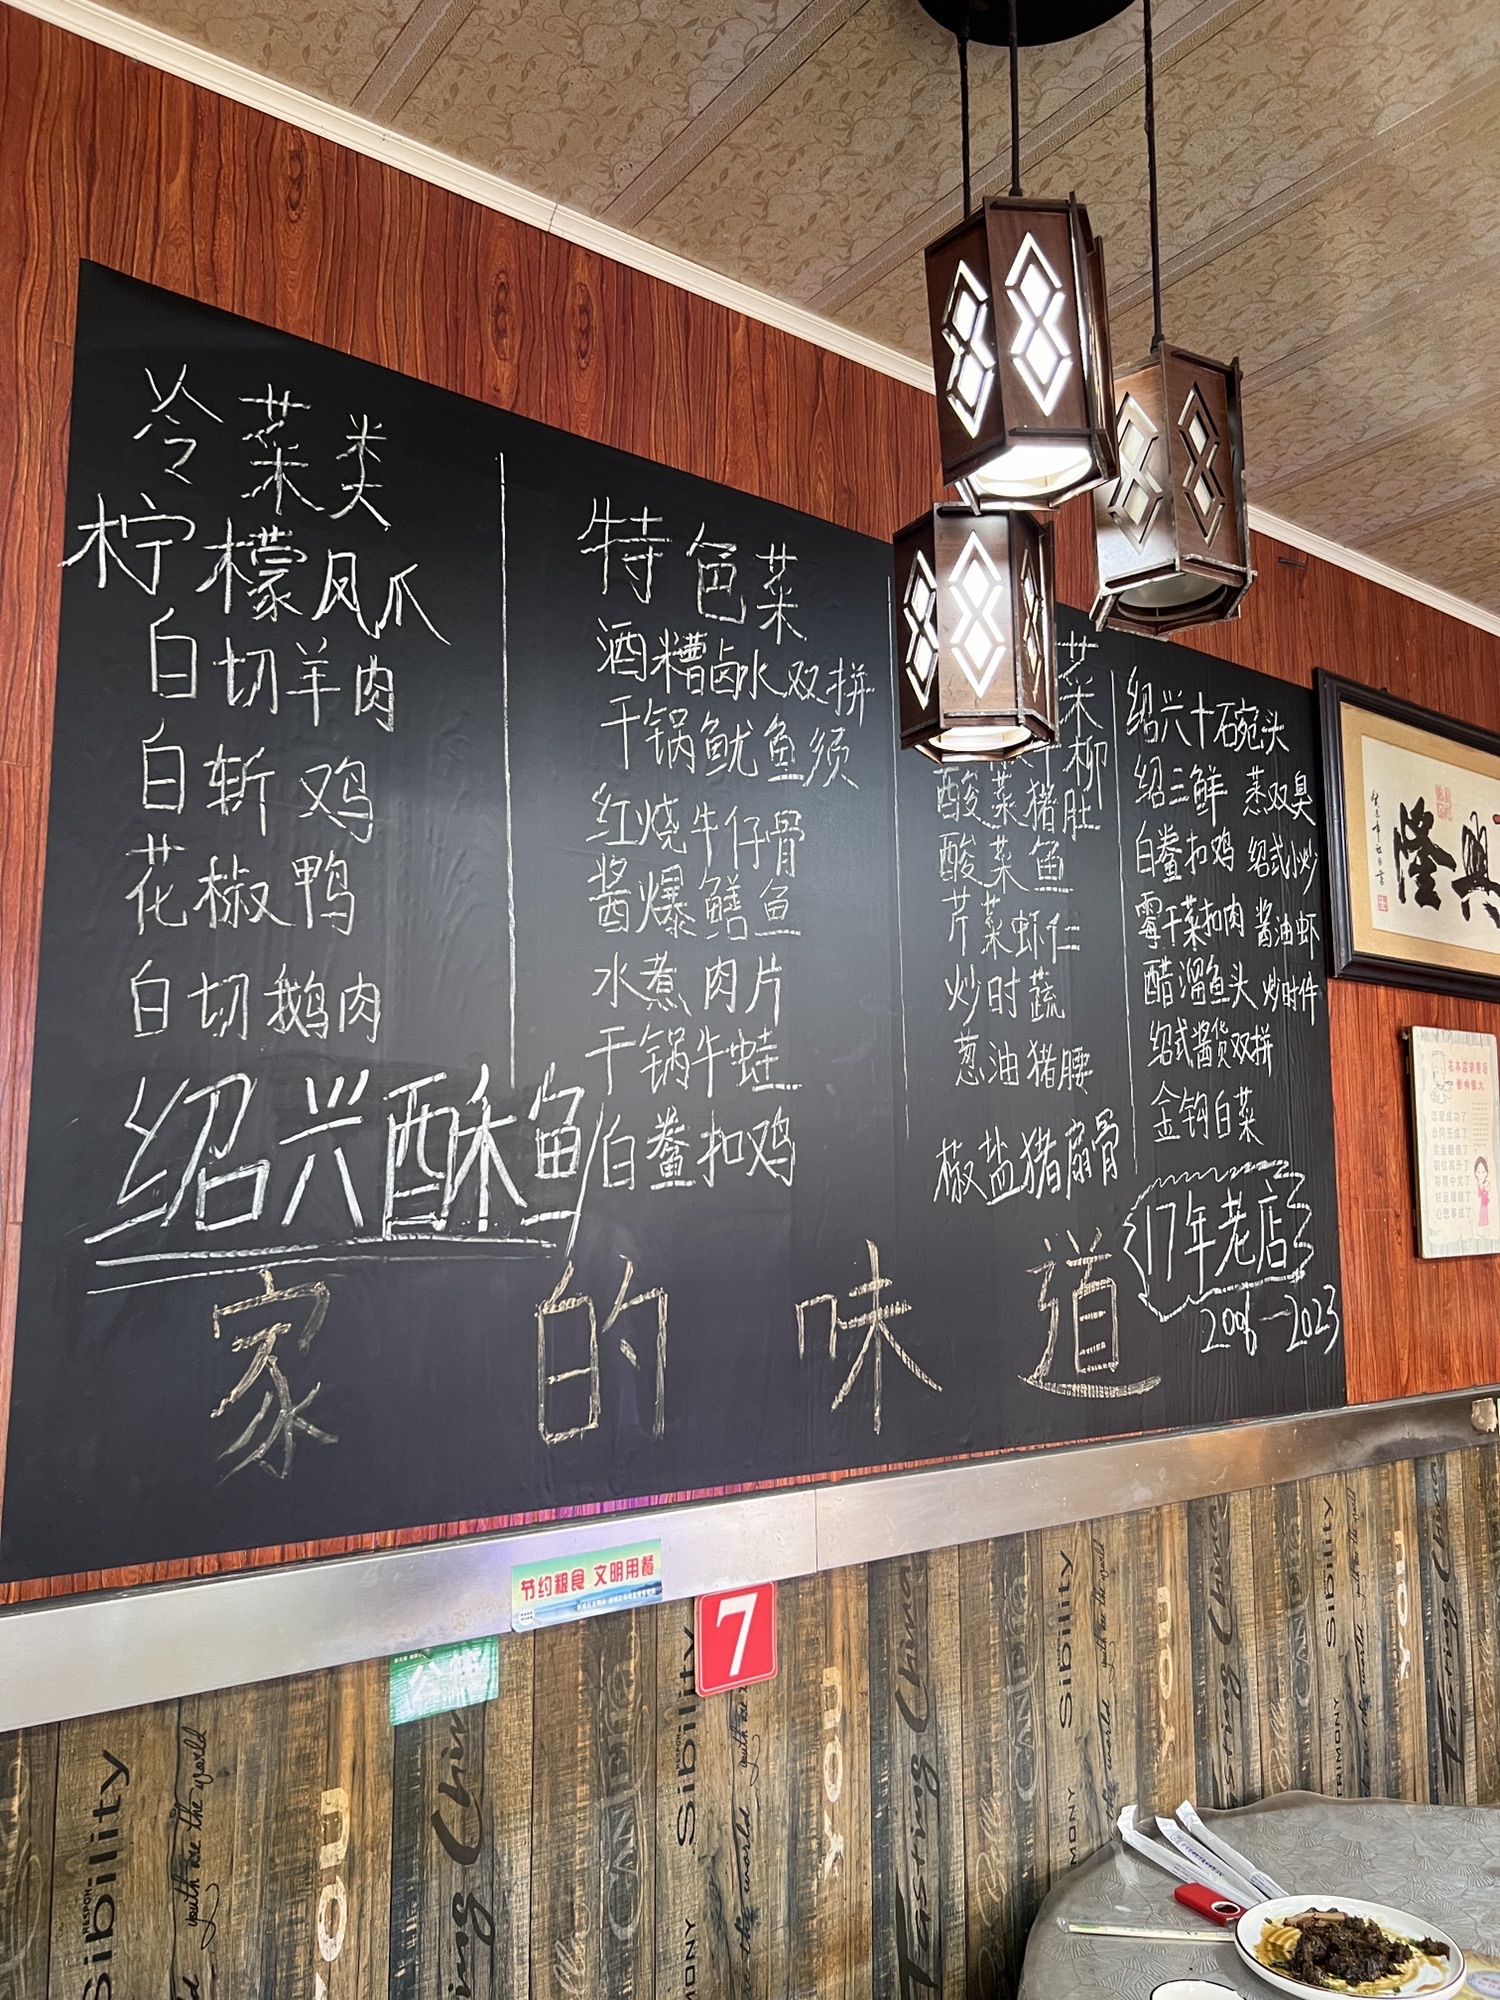 冷菜类
柠檬凤爪
白切羊肉
白斩鸡
花椒鸭
白切鹅肉
绍兴酥鱼
特色菜
酒糟卤水双拼
干锅鱿鱼须
红烧牛仔骨
酱爆鳝鱼
水煮肉片
干锅牛蛙
白鲞扣鸡
菜
柳
酸菜猪肚
酸菜鱼
芹菜虾仁
炒时蔬
葱油猪腰
椒盐猪扇骨
绍兴十碗头
绍三鲜 蒸双臭
白鲞扣鸡 绍式小炒
霉干菜扣肉 酱油虾
醋溜鱼头 炒时件
绍式酱货双拼
金钩白菜
17年老店
2006-2023
家的味道
隆興
节约粮食 文明用餐
7
公筷
Sibility
RESPON
youth use the world
YOU
Tasting China
Sibility
MONY
YOU
Tasting China
Sibility
YOU